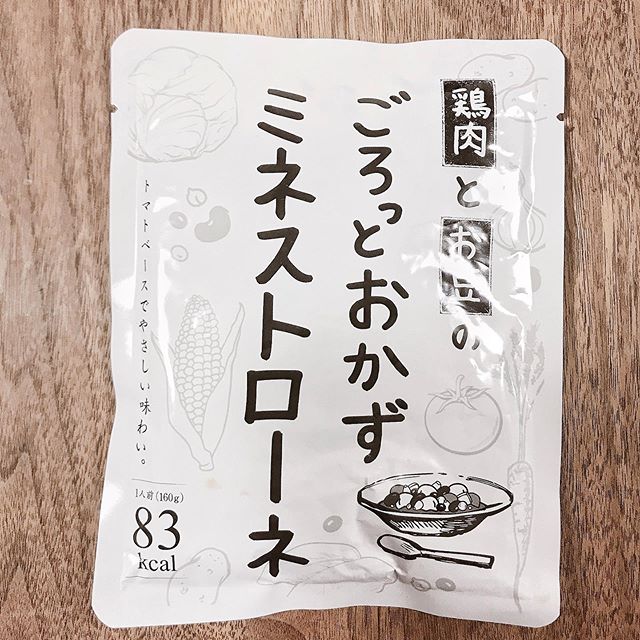 鶏肉とお豆の
ごろっとおかず
ミネストローネ
トマトベースでやさしい味わい。
1人前(160g)
83
kcal